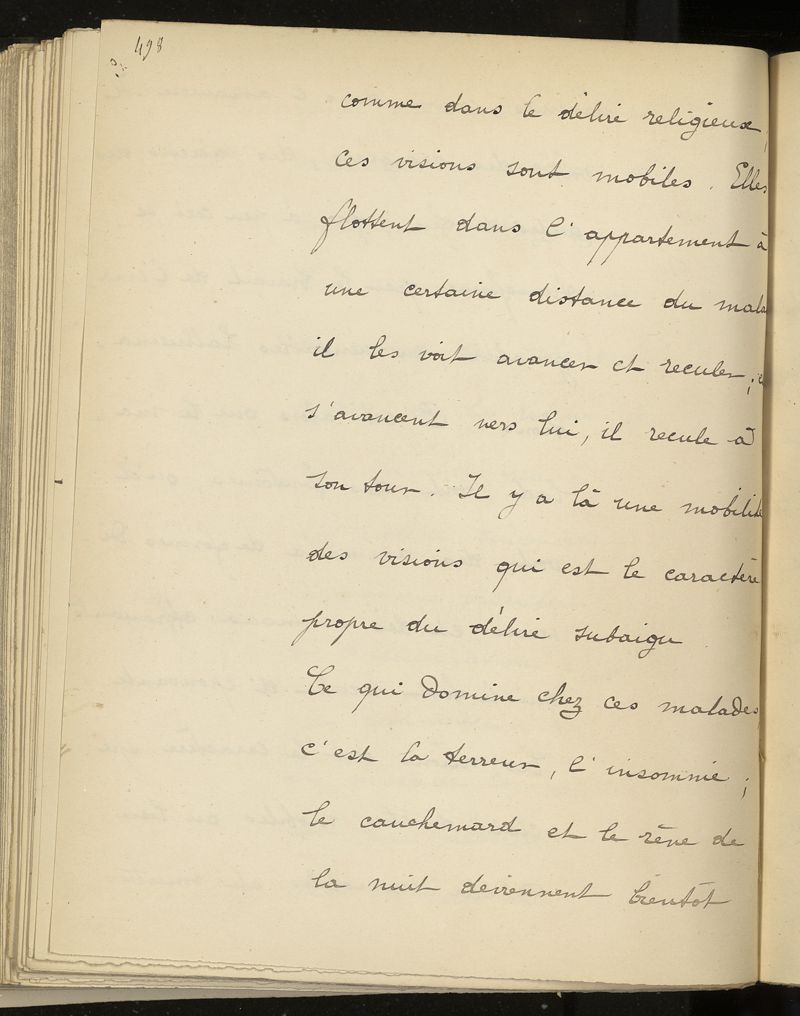 498
comme dans le délire religieux,
ces visions sont mobiles. Elles
flottent dans l'appartement à
une certaine distance du mala
il les voit avancer et reculer;
s'avancent vers lui, il recule à
son tour. Il y a là une mobilité
des visions qui est le caractère
propre du délire subaigu
Ce qui domine chez ces malades,
c'est la terreur, l'insomnie;
le cauchemard et le rêve de
la nuit deviennent bientôt